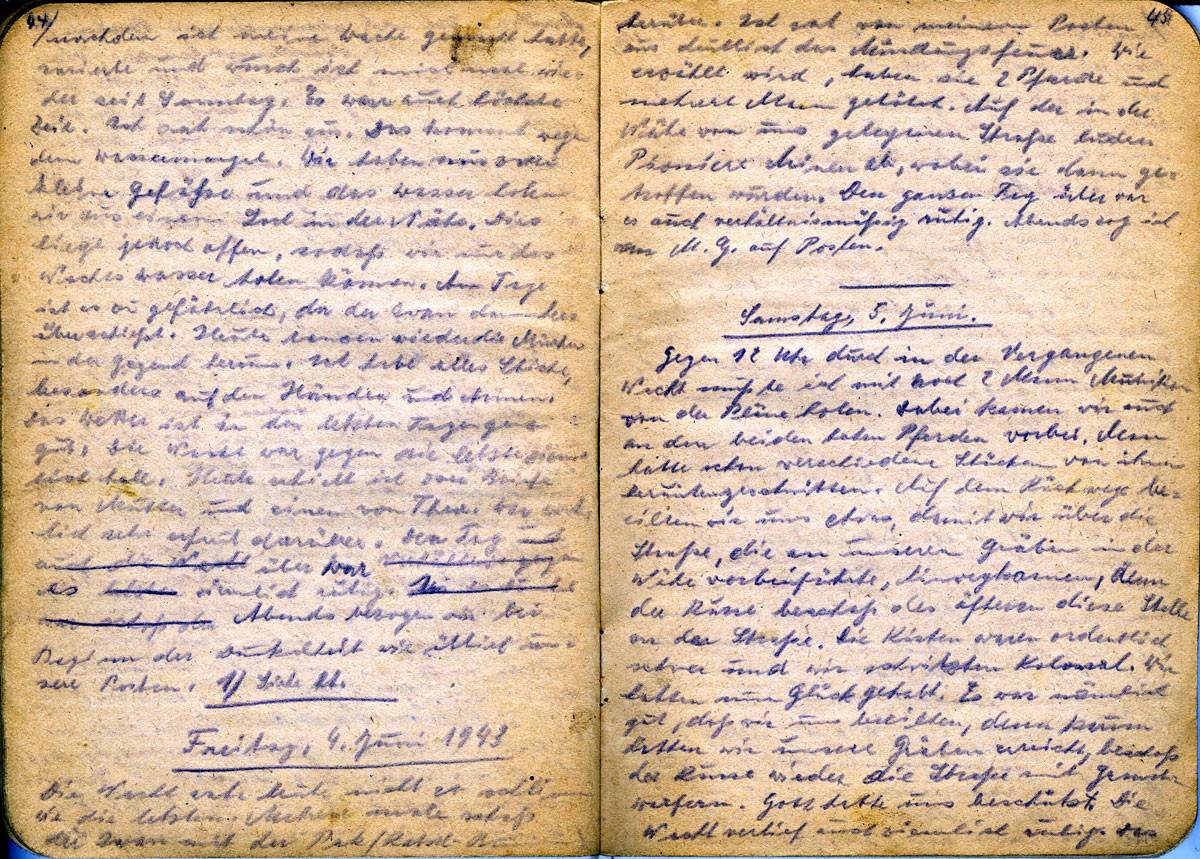 44/
nachdem ich meine Wache gemacht hatte,
rasierte und wusch ich mich mal wie-
der seit Sonntag. Es war auch höchste
Zeit. Ich sah schön aus. Das kommt wegen
dem Wassermangel. Wir haben nur
kleine Gefäße und das Wasser holen
wir aus einem Loch in der Nähe. Dies
liegt jedoch offen, sodaß wir nur des
Nachts Wasser holen können. Am Tage
ist es zu gefährlich, da der Iwan
Heute wieder die Mücken
in der Gegend herum. Ich habe alles Stiche,
besonders auf den Händen und Armen.
Das Wetter ist in den letzten Tagen ganz
gut. Die Nacht war gegen die letzte ziem-
lich hell. Heute erhielt ich zwei Briefe
von Mutter und einen von Theo. War
sehr erfreut darüber. Den Tag und
über war
es ziemlich ruhig.
Abends bezogen wir bei
Beginn der Dunkelheit wie üblich un-
sere Posten. 1) Siehe
Freitag, 4. Juni 1943
Die Nacht heute nicht so schlimm
wie die letzten. Mehrere male schoß
der Iwan mit der Pak
45.
herüber. Ich sah von meinem Posten
aus deutlich das Mündungsfeuer. Wie
erzählt wird, haben sie 2 Pferde und
mehrere Mann getötet. Auf der in der
Nähe von uns gelegenen Straße luden
Pioniere Minen ab, wobei sie dann ge-
troffen wurden. Den ganzen Tag über war
es auch verhältnismäßig ruhig. Abends zog ich
am M. G. auf Posten.
Samstag, 5. Juni.
Gegen 12 Uhr in der Vergangenen
Nacht mußte ich mit noch 2 Mann Munition
von der holen. Dabei kamen wir auch
an den beiden toten Pferden vorbei. Man
hatte schon verschiedene Stücken von ihnen
heruntergeschnitten. Auf dem Rückwege be-
eilten wir uns etwas, damit wir über die
Straße, die an unseren Gräben in der
Nähe vorbeiführte, hinwegkamen, denn
der Russe beschoß des öfteren diese Stelle
an der Straße. Die Kisten waren ordentlich
schwer und wir schwitzten Kolossal. Wir
hatten nun Glück gehabt. Es war nämlich
gut, daß wir uns beeilten, denn kaum
hatten wir unsere Gräben erreicht, beschoß
der Russe wieder die Straße mit Granat-
werfern. Gott hatte uns beschützt. Die
Nacht verlief auch ziemlich ruhig. Das